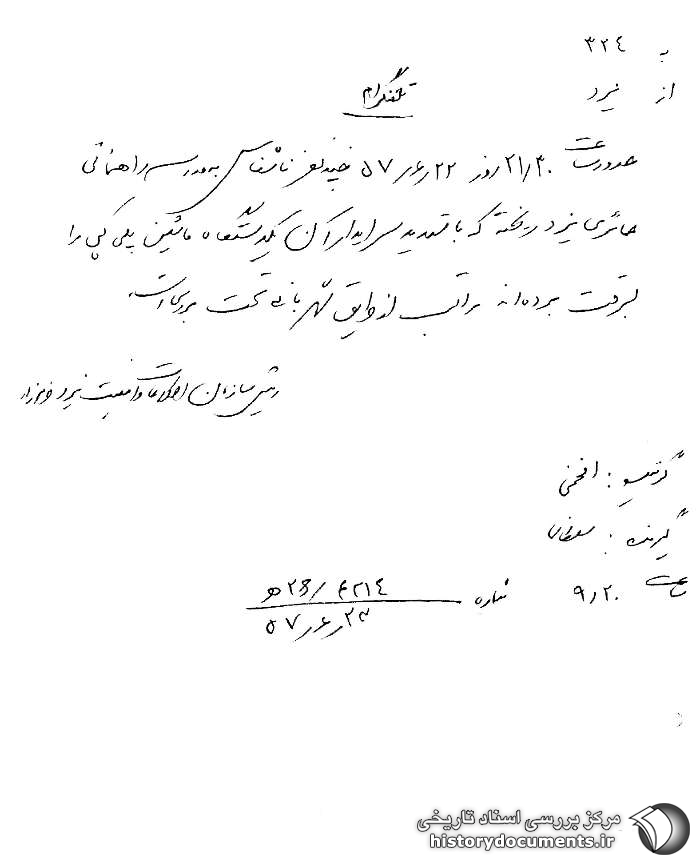 به ۳۲۴
از یزد
تلفنگرام
حدود ساعت ۲۱/۳۰ روز ۲۲ر۶ر۵۷ چند نفر ناشناس به مدرسه راهنمائی
حائری یزد ریخته که با تهدید سرایدار آن یکدستگاه ماشین پلی کپی را
بسرقت برده‌اند مراتب از طریق شهربانی تحت بررسی است.
رئیس سازمان اطلاعات و امنیت یزد
گوینده : افخمی
گیرنده :
ساعت ۹٫۲۰ شماره ۴۲۱۴/ ۲۳ ھ
۲۳ر۶ر۵۷
مرکز بررسی اسناد تاریخی
historydocuments.ir